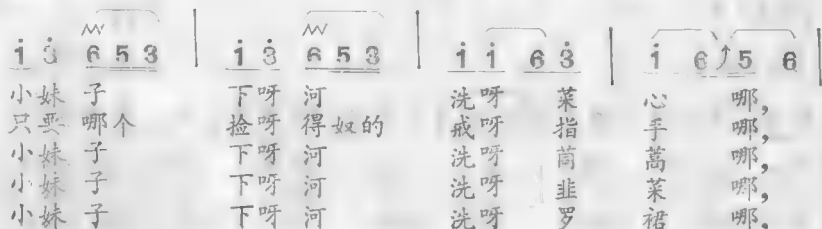 i 3 6 5 3 | i 3 6 5 3 | i i 6 3 | i 6 5 6 |
小妹子 下呀河 洗呀菜心哪,
只要哪个 捡呀得奴的 戒呀指手哪,
小妹子 下呀河 洗呀茼蒿哪,
小妹子 下呀河 洗呀韭菜哪,
小妹子 下呀河 洗呀罗裙哪,